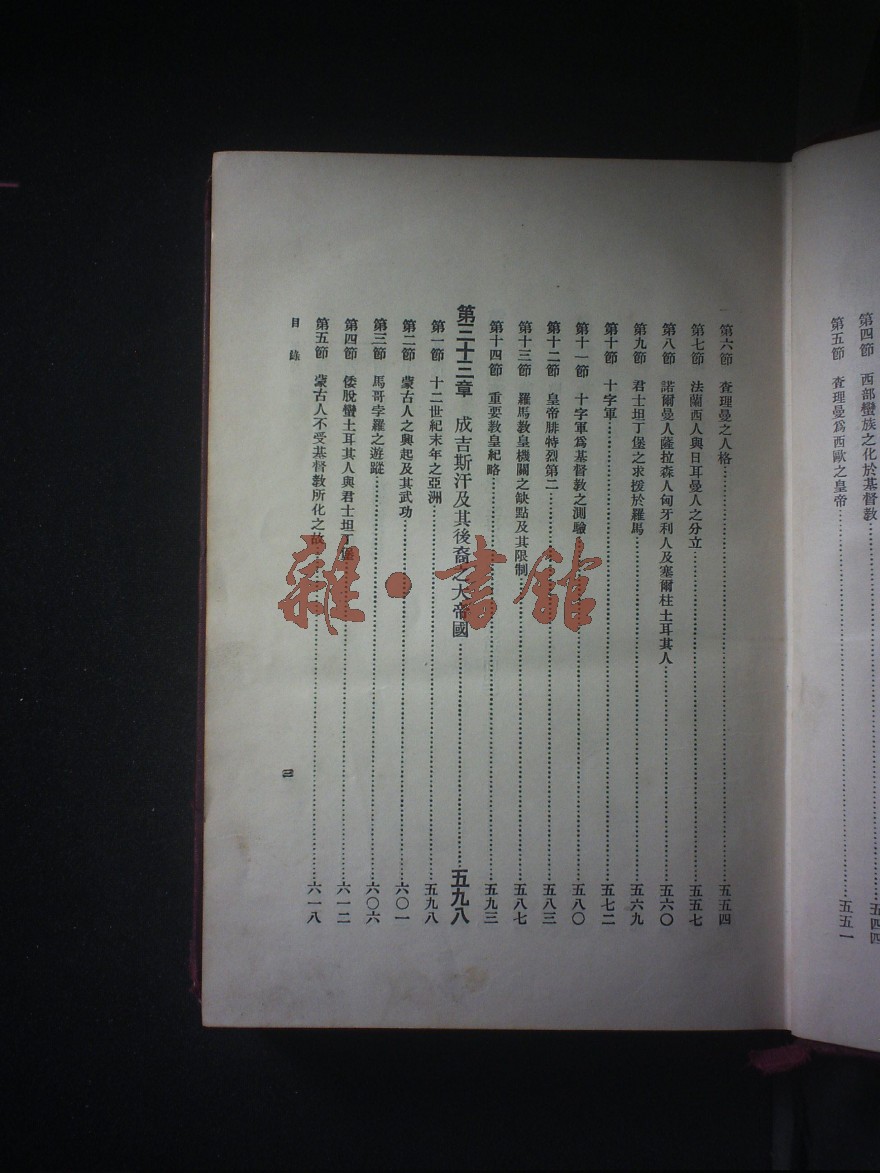 第四節　西部蠻族之化於基督教……五四四
第五節　查理曼爲西歐之皇帝……五五一
第六節　查理曼之人格……五五四
第七節　法蘭西人與日耳曼人之分立……五五七
第八節　諾爾曼人薩拉森人匈牙利人及塞爾柱土耳其人……五六〇
第九節　君士坦丁堡之求援於羅馬……五六九
第十節　十字軍……五七二
第十一節　十字軍爲基督教之測驗……五八〇
第十二節　皇帝腓特烈第二……五八三
第十三節　羅馬教皇機關之缺點及其限制……五八七
第十四節　重要教皇紀略……五九三
第三十三章　成吉斯汗及其後裔之大帝國……五九八
第一節　十二世紀末年之亞洲……五九八
第二節　蒙古人之興起及其武功……六〇一
第三節　馬哥孛羅之遊蹤……六〇六
第四節　倭脫蠻土耳其人與君士坦丁堡……六一二
第五節　蒙古人不受基督教所化之故……六一八
目錄
三
雜·書館